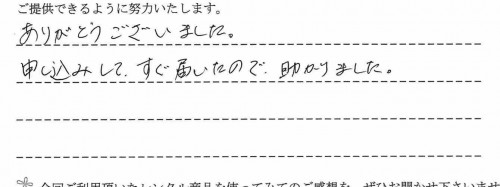 ご提供できるように努力いたします。
ありがとうございました。
申し込みして、すぐ届いたので、助かりました。
今回ご利用頂いたレンタル商品を使ってみてのご感想を、ぜひお聞かせ下さいませ